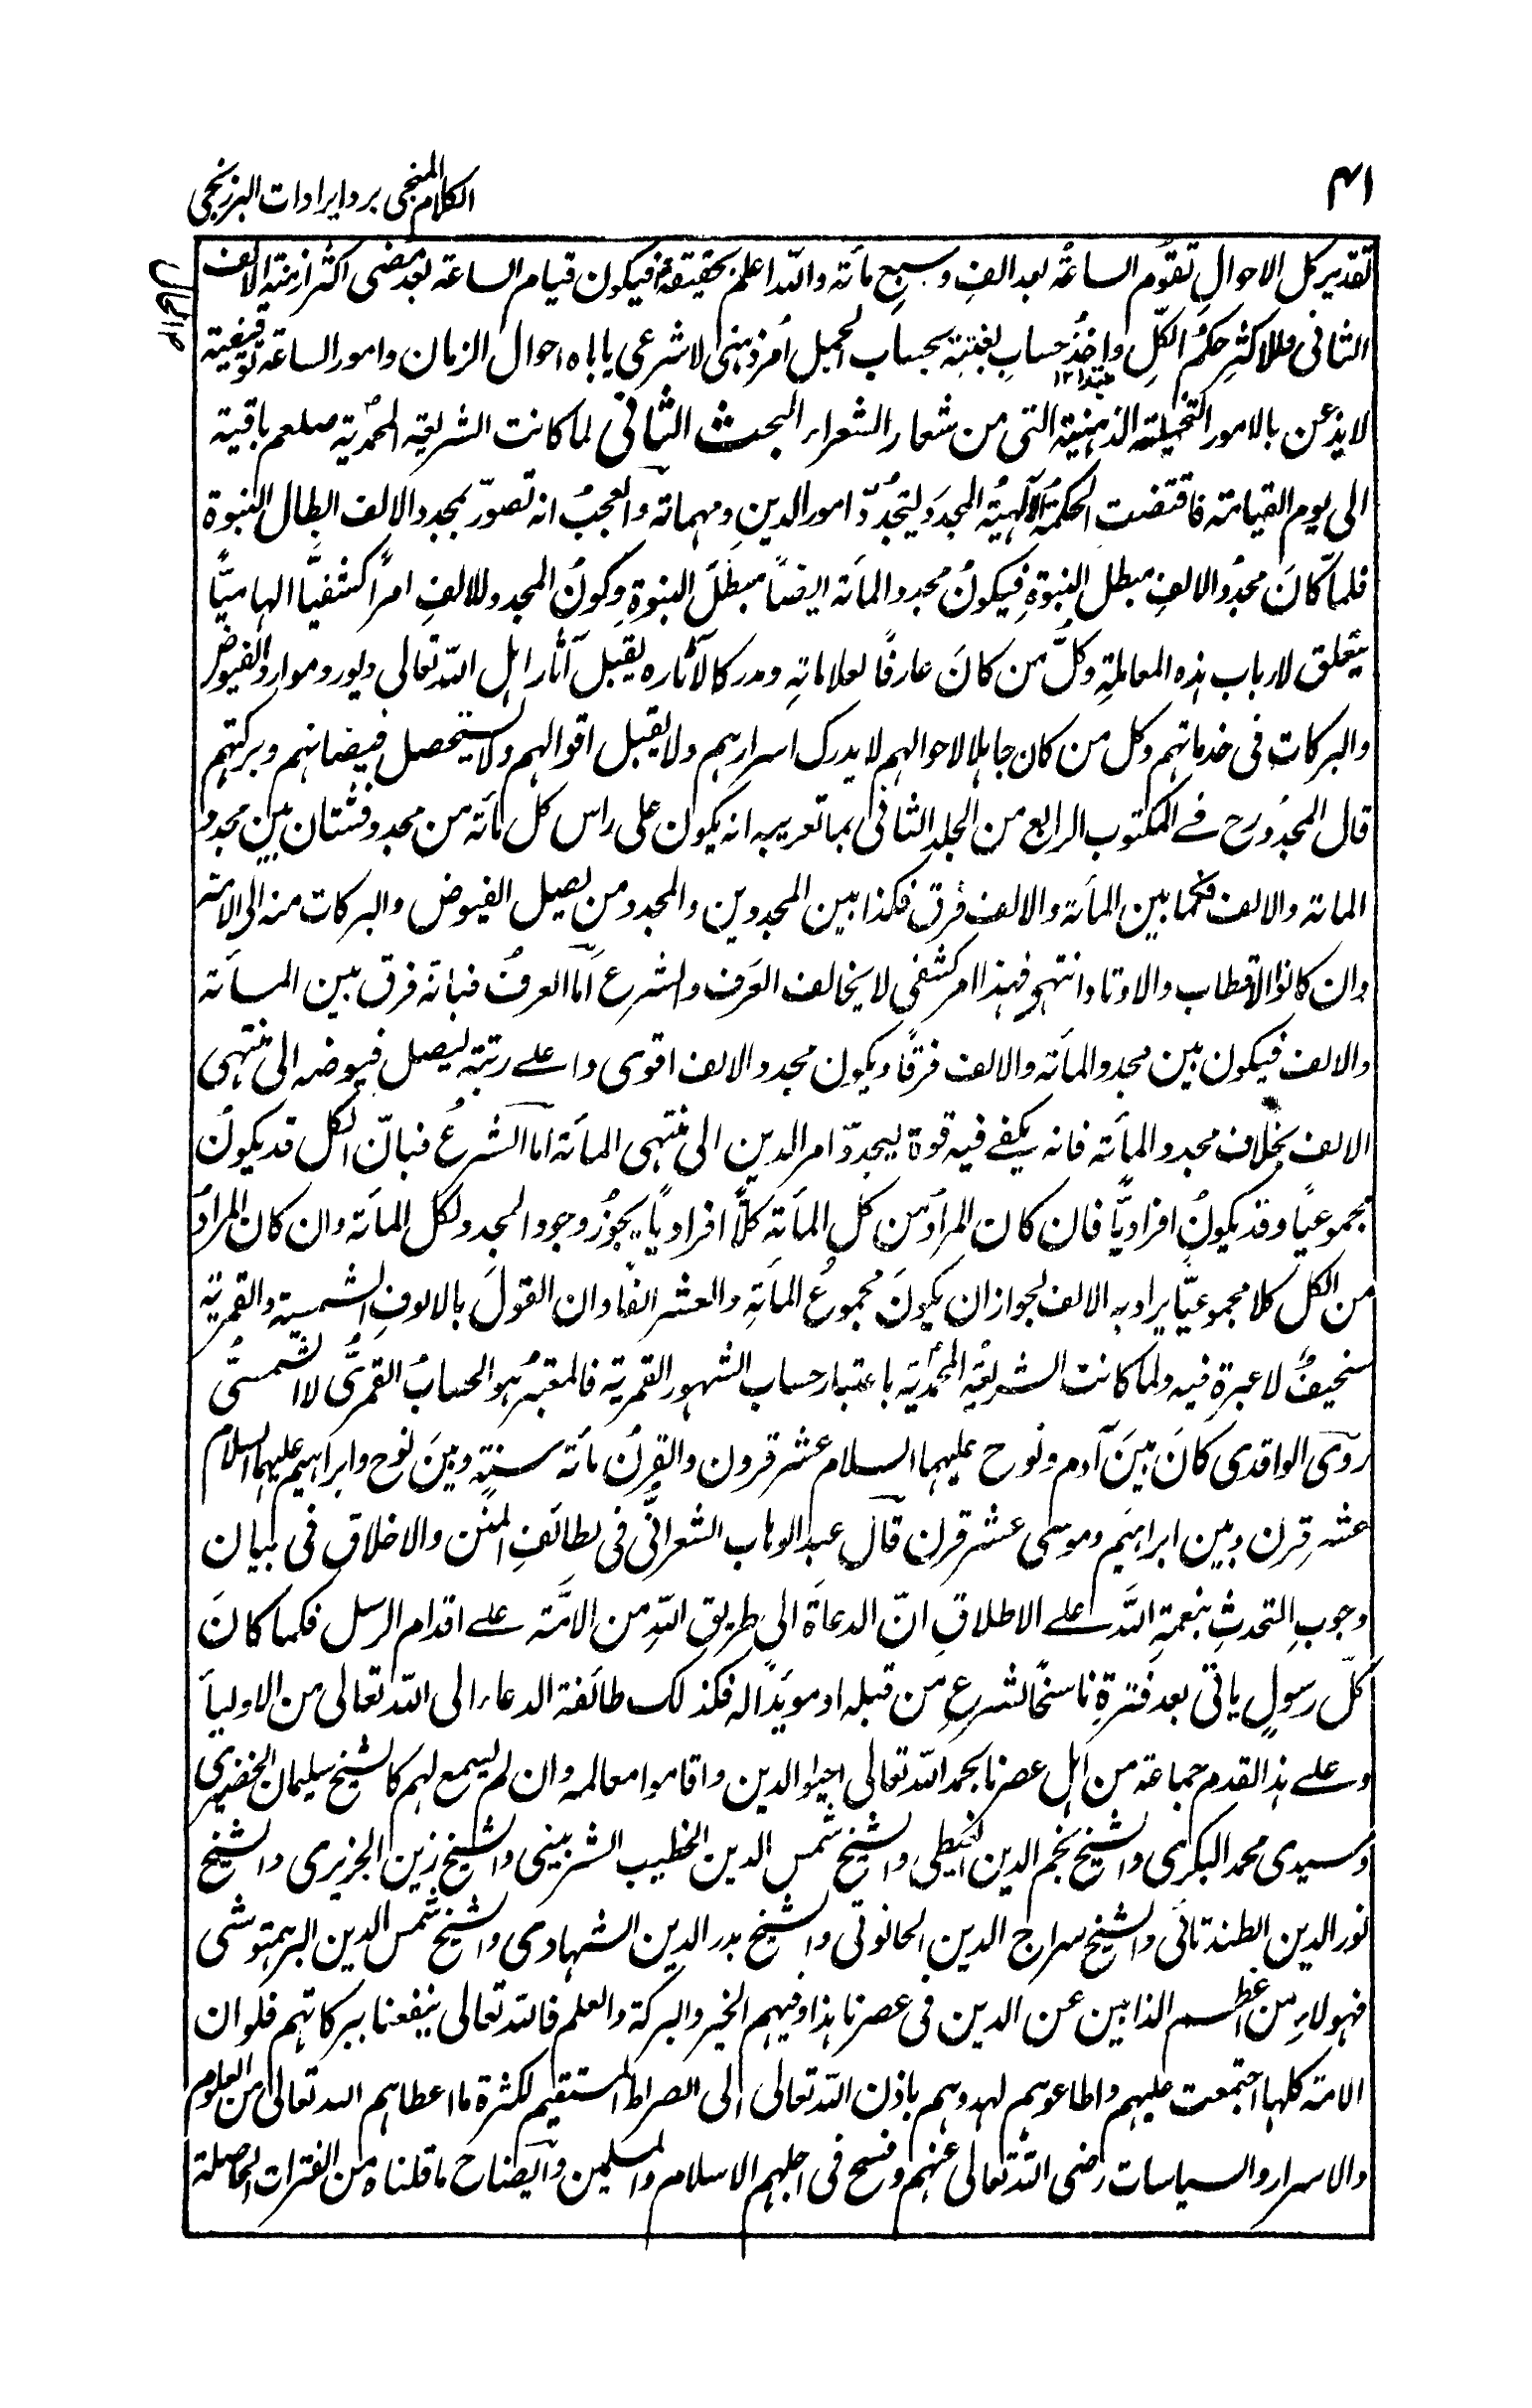 ٤١
الكلام المنجى برد ايرادات البرزنجى
تقدير كل الاحوالِ تقوم الساعةُ بعد الفٍ وسبعِ مأته والله اعلم بحقيقةٍ فيكون قيام الساعة بعد مضى اكثر ازمنة الالف
الثانى وللاكثرِ حكمُ الكلِّ واخذُ حسابِ بغتة بحساب الجمل أمر ذهنى لا شرعى ياباه احوال الزمان وامور الساعة توقيفية
مبتدا ١٢
لا يذعن بالامور التخيلته الذهنية التى من شعار الشعراء المبحث الثانى لما كانت الشريعة المحمدية صلعم باقية
الى يوم القيامته فاقتضت الحكمةُ الآلهيةُ المجدَ ليتجدُّدّ امور الدينِ ومهماته والعجبُ انه تصوّر بمجدد الالف ابطال النبوة
فلمّا كانَ مجدُد الالفِ مبطل النبوةِ فيكونُ مجدد المأته ايضاً مبطلَ النبوةِ وكونُ المجدد للالفِ امراً كشفيًّا الهاميًّا
يتعلق لارباب هذه المعاملةِ وكلُّ من كانَ عارفًا لعلاماتهِ ومدركا لآثاره يقبل آثار اهل الله تعالى ويورد موارد الفيوض
والبركات فى خدماتهم وكل من كان جاهلا لاحوالهم لا يدرك اسرارهم ولا يقبل اقوالهم ولا يستحصل فيضانهم وبركتهم
قال المجدُدرح فى المكتوب الرابع من الجلد الثانى بما تعريبه انه يكون على راس كل مأته من مجدد فشتان بين مجدد
المائة والالف فكما بين المأته والالفِ فرق فكذا بين المجددين والمجدد من يصيل الفيوض والبركات منه الى الامته
وان كانوا الاقطاب والاوتاد انتهى فهذا امر كشفى لا يخالف العرف والشرع اما العرفُ فبانه فرق بين المسأته
والالف فيكون بين مجدد المأته والالف فرقًا ويكون مجدد الالف اقوى واعلے رتبة ليصل فيوضه الى منتهى
الالف بخلاف مجدد المأته فانه يكفے فيه قوة ليجددّ امر الدين الى منتهى المأته اما الشرعُ فبانّ الكل قد يكونُ
مجموعيًا وقد يكونُ افراديًّا فان كان المرادُ من كل المأتهِ كلًّا افراديًا يجوُز وجود المجدد لكل المأته وان كان المرادُ
من الكل كلا مجموعيًّا يراد به الالف لجواز ان يكونَ مجموعُ المأتهِ والعشر الفًا وان القولَ بالالوفِ الشمسية والقمرية
سخيفٌ لا عبرة فيه ولما كانت الشريعةُ المحمدّية باعتبار حساب الشهور القمرية فالمعتبرُ هو الحسابُ القمرىُّ لا الشمسىُّ
روٓى الواقدى كانَ بينَ آدم ونوح عليهما السلام عشر قرون والقرنُ مأته سنتهٍ وبينَ نوح وابراهيم عليهما السلام
عشر قرن وبين ابراهيم وموسى عشر قرن قال عبد الوهاب الشعرانىُّ فى لطائفِ المنن والاخلاق فى بيان
وجوبِ التحدثِ بنعمةِ الله علے الاطلاقِ انّ الدعاةَ الى طريقِ اللهِ من الامَّته علے اقدام الرسل فكما كانَ
كلّ رسولٍ ياتى بعد فترةِ ناسخًا لشرعِ من قبله او مويدًا له فكذلك طائفة الدعاء الى الله تعالى من الاولياء
وعلے هذا القدم جماعة من اهل عصرنا بحمد الله تعالى احيوا الدين واقاموا معالمه وان لم يسمع لهم كالشيخ سليمان الخضيرى
وسيدى محمد البكرى والشيخ نجم الدين الغيطى والشيخ شمس الدين الخطيب الشربينى والشيخ زين الجزيرى والشيخ
نور الدين الطندتائى والشيخ سراج الدين الحانوتى والشيخ بدر الدين الشهادى والشيخ شمس الدين البرهمتوشى
فهولاء من اعظم الذابين عن الدين فى عصرنا هذا وفيهم الخير والبركة والعلم فالله تعالى ينفعنا ببركاتهم فلو ان
الامته كلها اجتمعت عليهم واطاعوهم لهدوهم باذن الله تعالى الى الصراط المستقيم لكثرة ما اعطاهم الله تعالى من العلوم
والاسرار والسياسات رضى الله تعالى عنهم وفسح فى اجلهم الاسلام والمسلمين وايضاح ما قلناه من الفترات الحاصلة